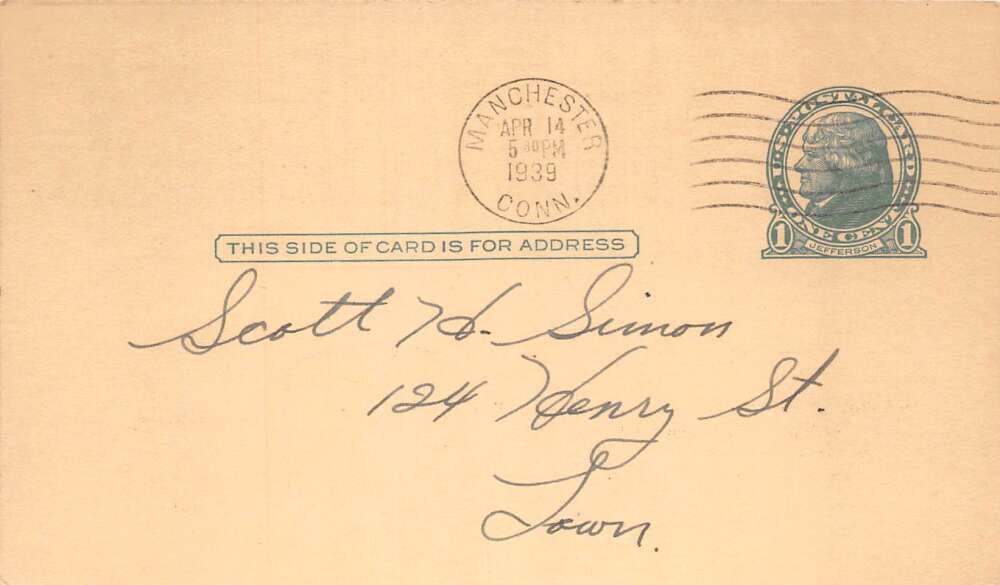 MANCHESTER
APR 14
5 30 PM
1939
CONN.
U.S. POSTAL CARD
ONE CENT
1 JEFFERSON 1
THIS SIDE OF CARD IS FOR ADDRESS
Scott H. Simon
124 Henry St.
Town.